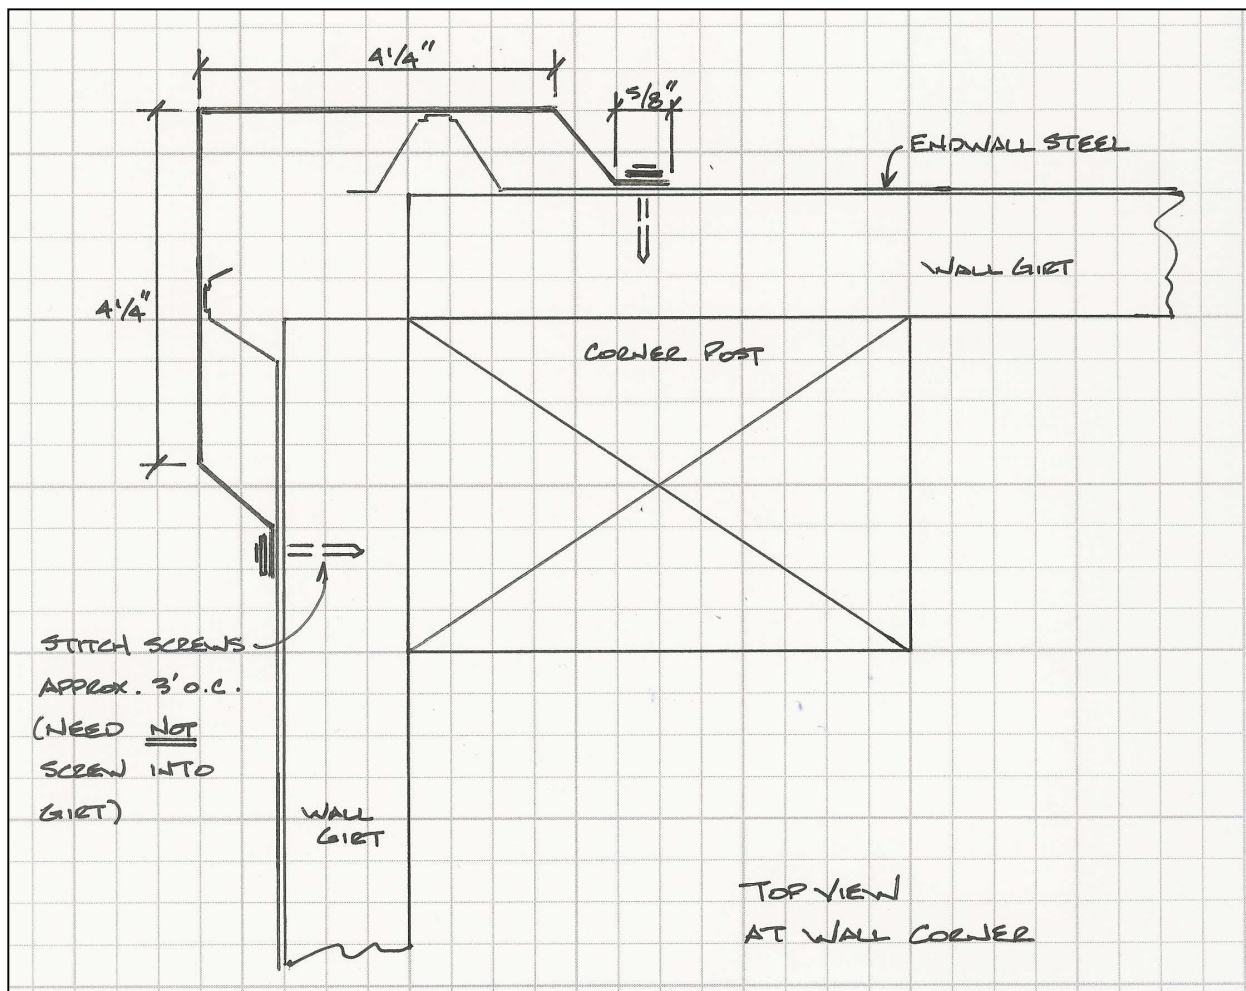 4 1/4"
5/8"
ENDWALL STEEL
WALL GIRT
4 1/4"
CORNER POST
STITCH SCREWS
APPROX. 3' O.C.
(NEED NOT
SCREW INTO
GIRT)
WALL
GIRT
TOP VIEW
AT WALL CORNER